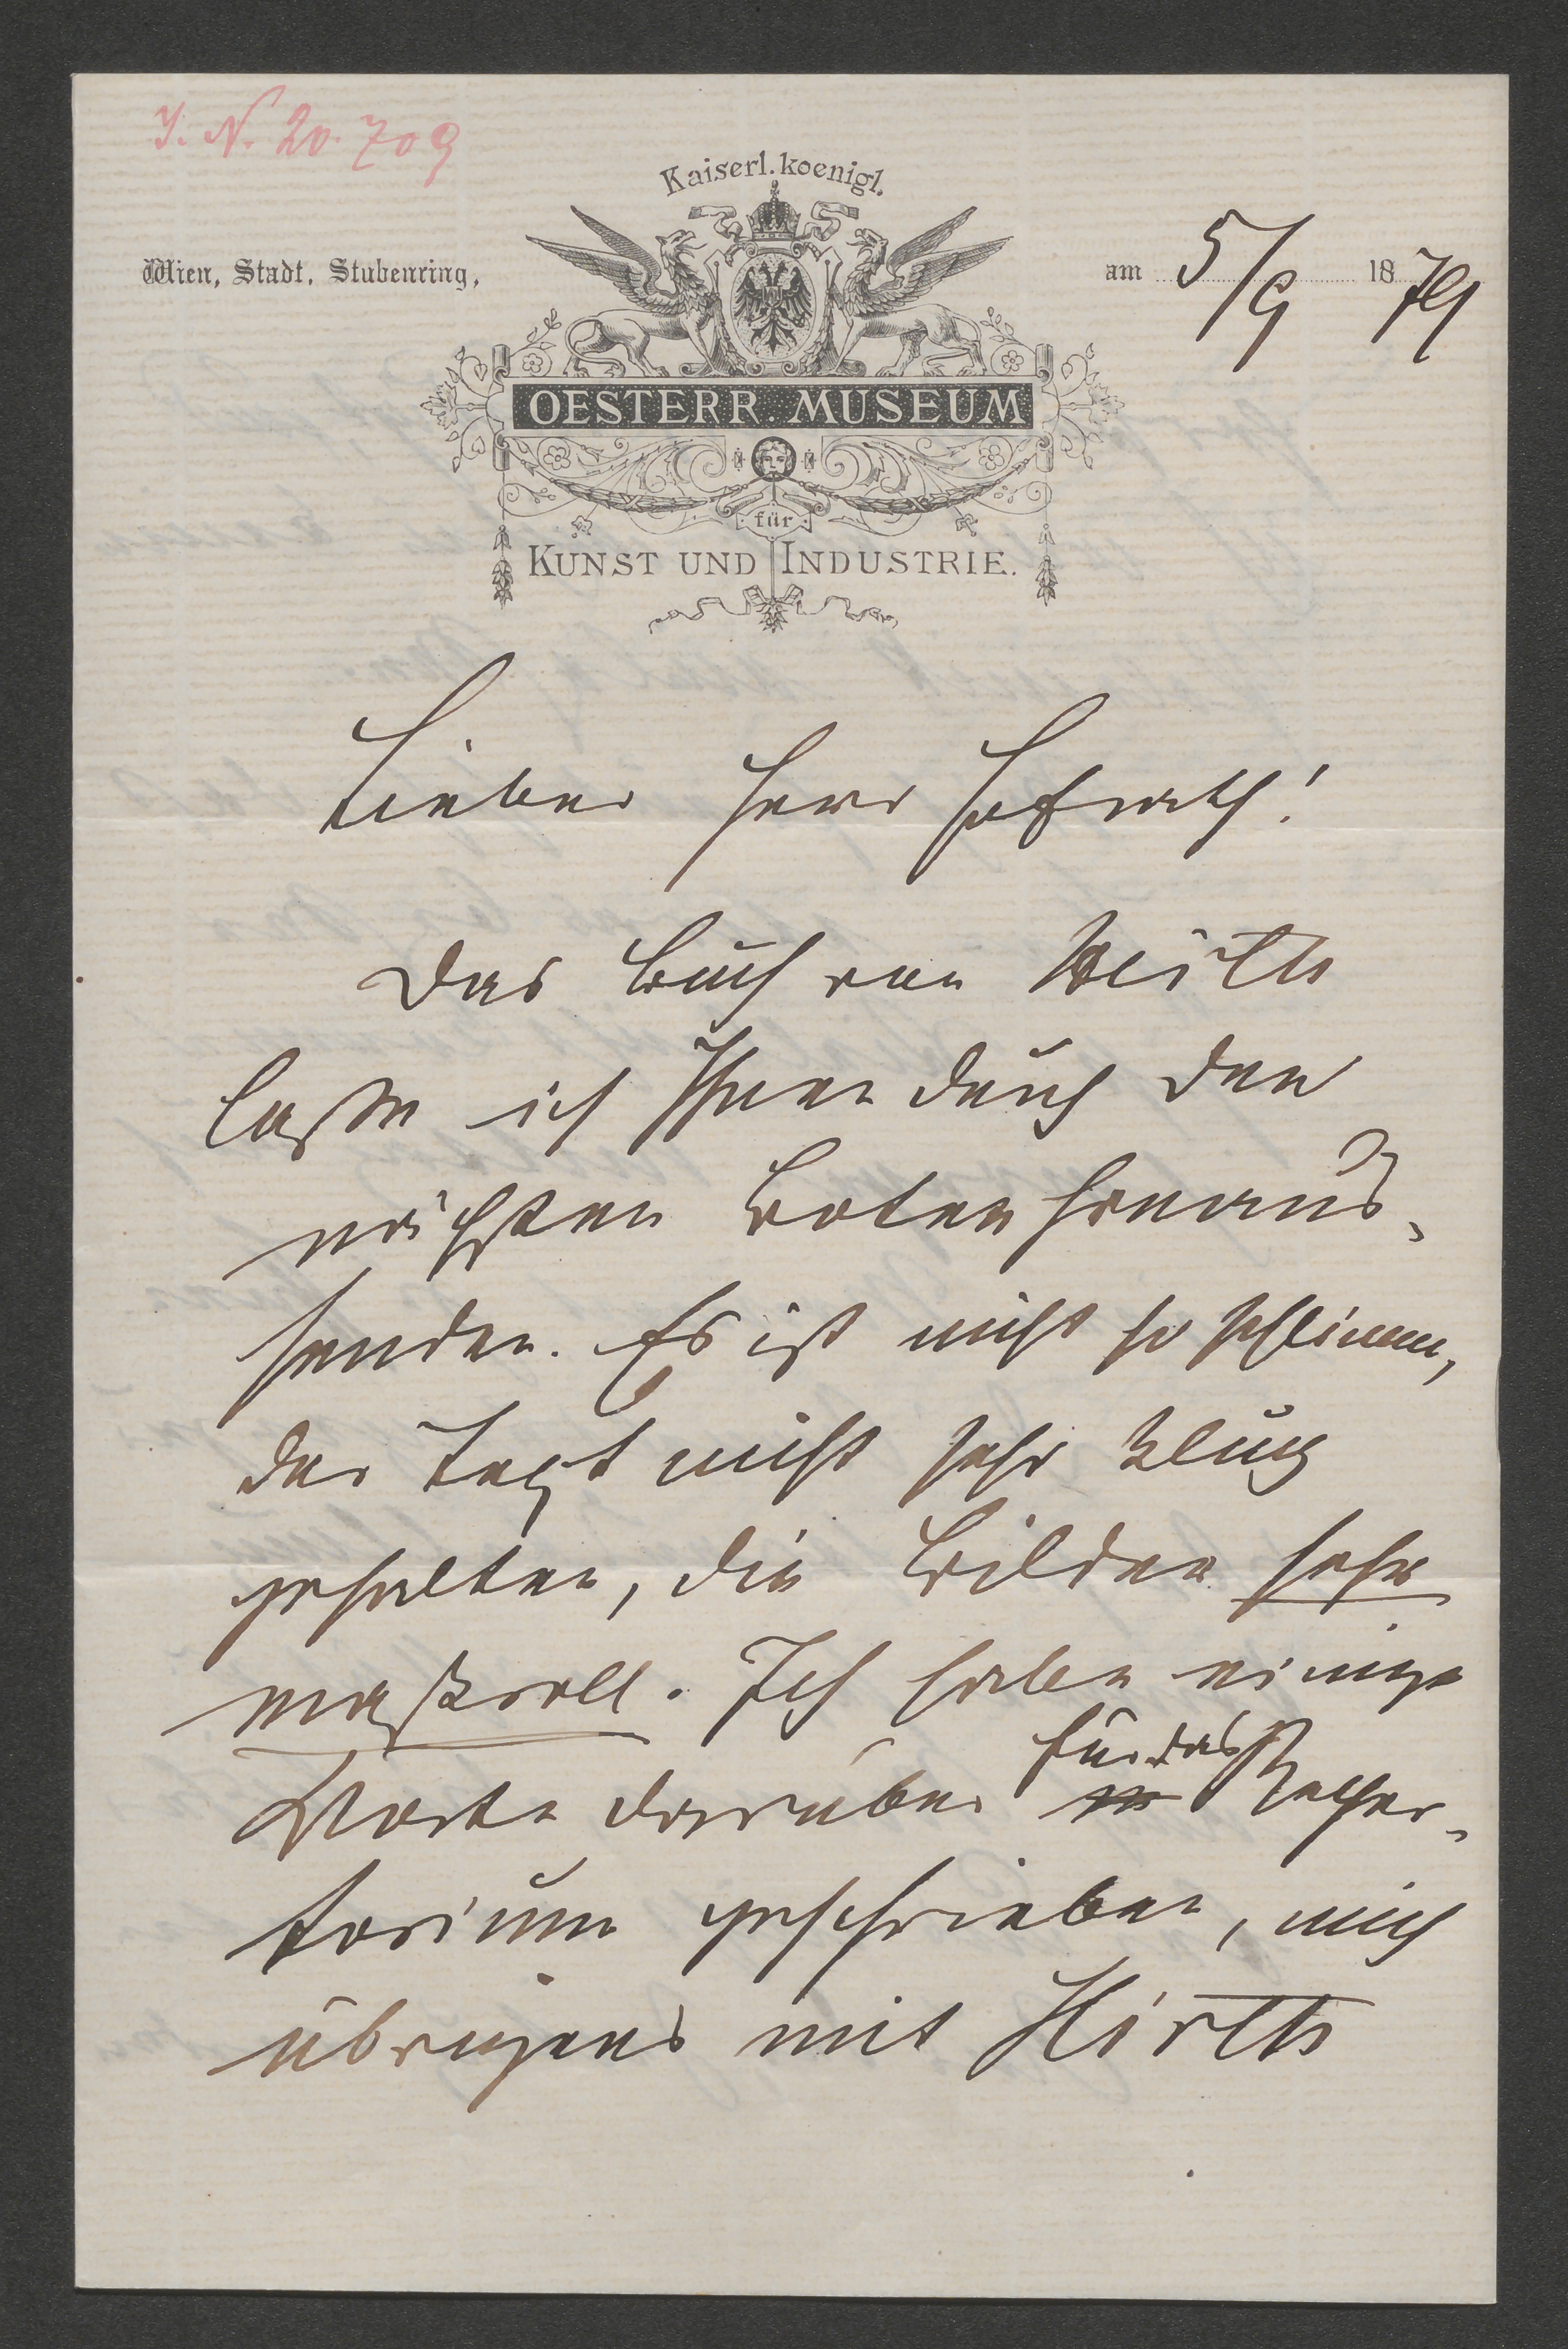 J. N. 20.709
Kaiserl. koenigl.
Wien, Stadt, Stubenring,
am 5/9 1879
OESTERR. MUSEUM
für
KUNST UND INDUSTRIE.
Lieber Herr Hofrath!
Das Buch von
laße ich Ihnen durch den
nächsten Boten hinaus-
senden. Es ist nicht so schlimm,
der Text nicht sehr klug
gehalten, die Bilder sehr
maßvoll. Ich habe einige
für das
Worte darüber Reper-
torium geschrieben, mich
übrigens mit Hirth